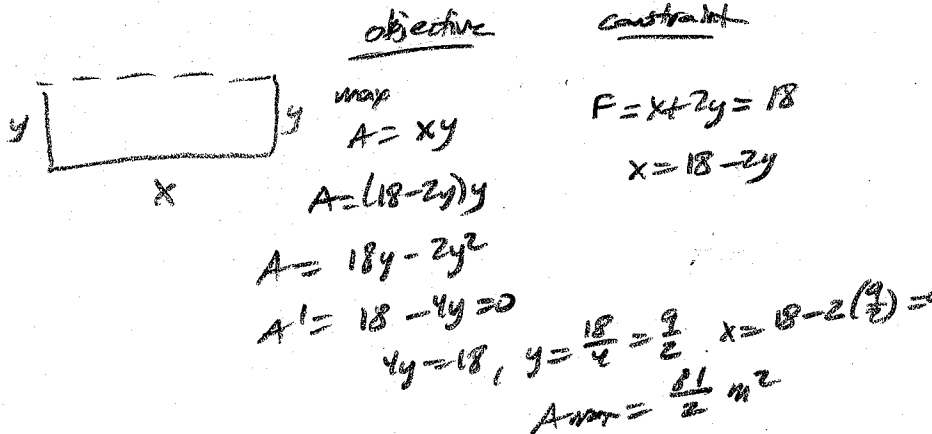 objective
constraint
y
y
x
max
A = xy
F = x + 2y = 18
A = (18-2y)y
x = 18 - 2y
A = 18y - 2y²
A' = 18 - 4y = 0
4y = 18, y = 18/4 = 9/2 x = 18 - 2(9/2) =
Amax = 81/2 m²